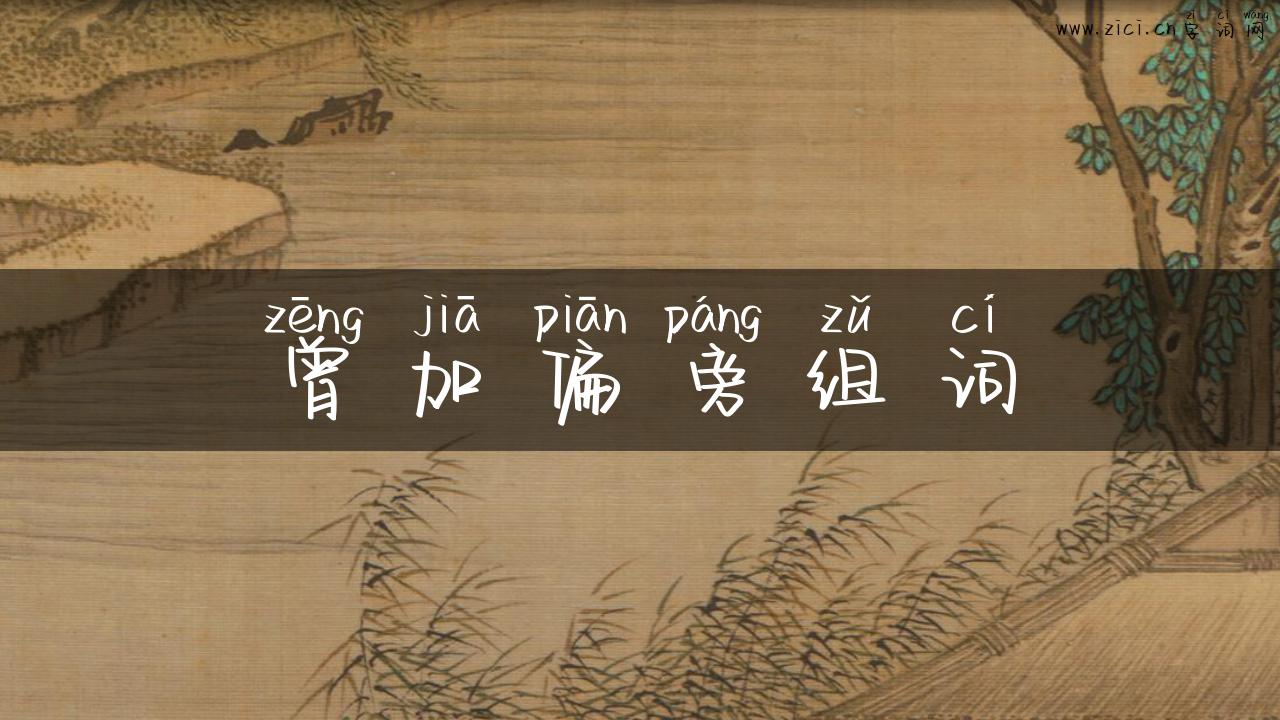 zì cí wǎng
www.zici.cn字词网
zēng jiā piān páng zǔ cí
曾加偏旁组词